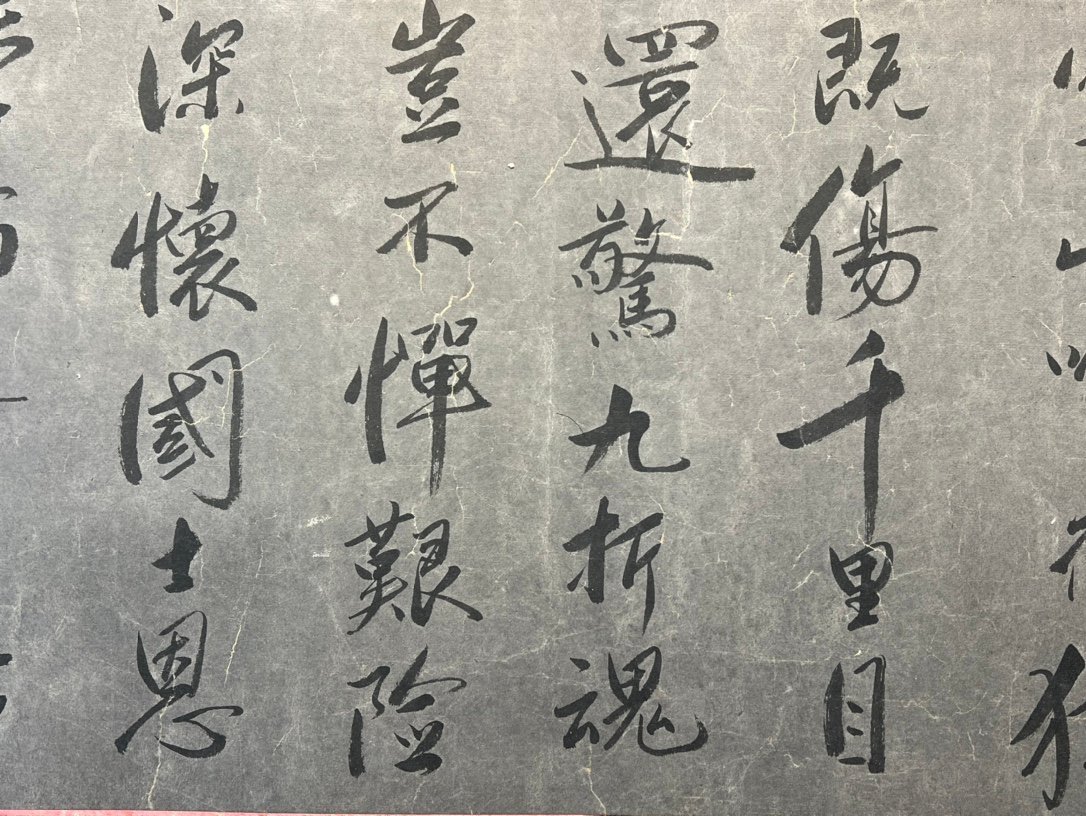 既傷千里目
還驚九折魂
豈不憚艱險
深懷國士恩